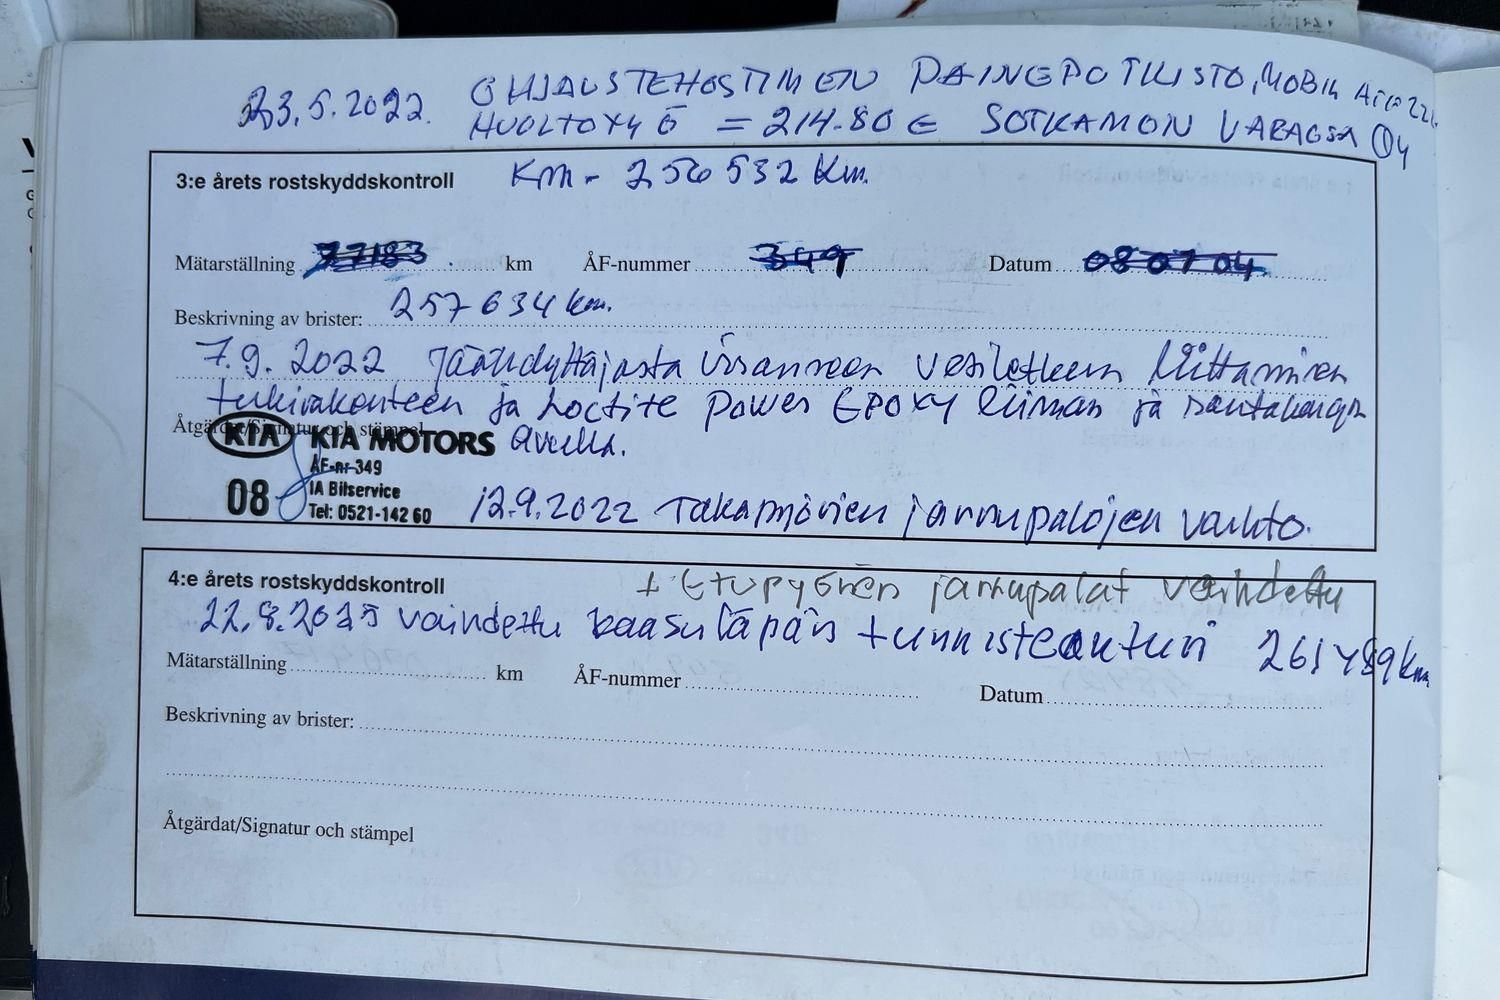 23.5.2022. OHJAUSTEHOSTIMEN PAINEPUTKISTO, MOBIL ATF 220
HUOLTOTYÖ = 214.80 € SOTKAMON VARAOSA OY
3:e årets rostskyddskontroll Km - 256 532 Km.
Mätarställning 37183 km ÅF-nummer 349 Datum 08 07 04
Beskrivning av brister: 257 634 km.
7.9.2022 Jäähdyttäjästä irranneen vesiletkun liittäminen
tukirakenteen ja Loctite Power Epoxy liiman ja
Åtgärdat/Signatur och stämpel avulla.
KIA KIA MOTORS
ÅF-nr 349
08 IA Bilservice
Tel: 0521-142 60
12.9.2022 Takapyörien jarrupalojen vaihto.
+ Etupyörien jarrupalat vaihdettu
4:e årets rostskyddskontroll
vaihdettu kaasuläpän tunnisteanturi
Mätarställning km ÅF-nummer Datum
Beskrivning av brister:
Åtgärdat/Signatur och stämpel